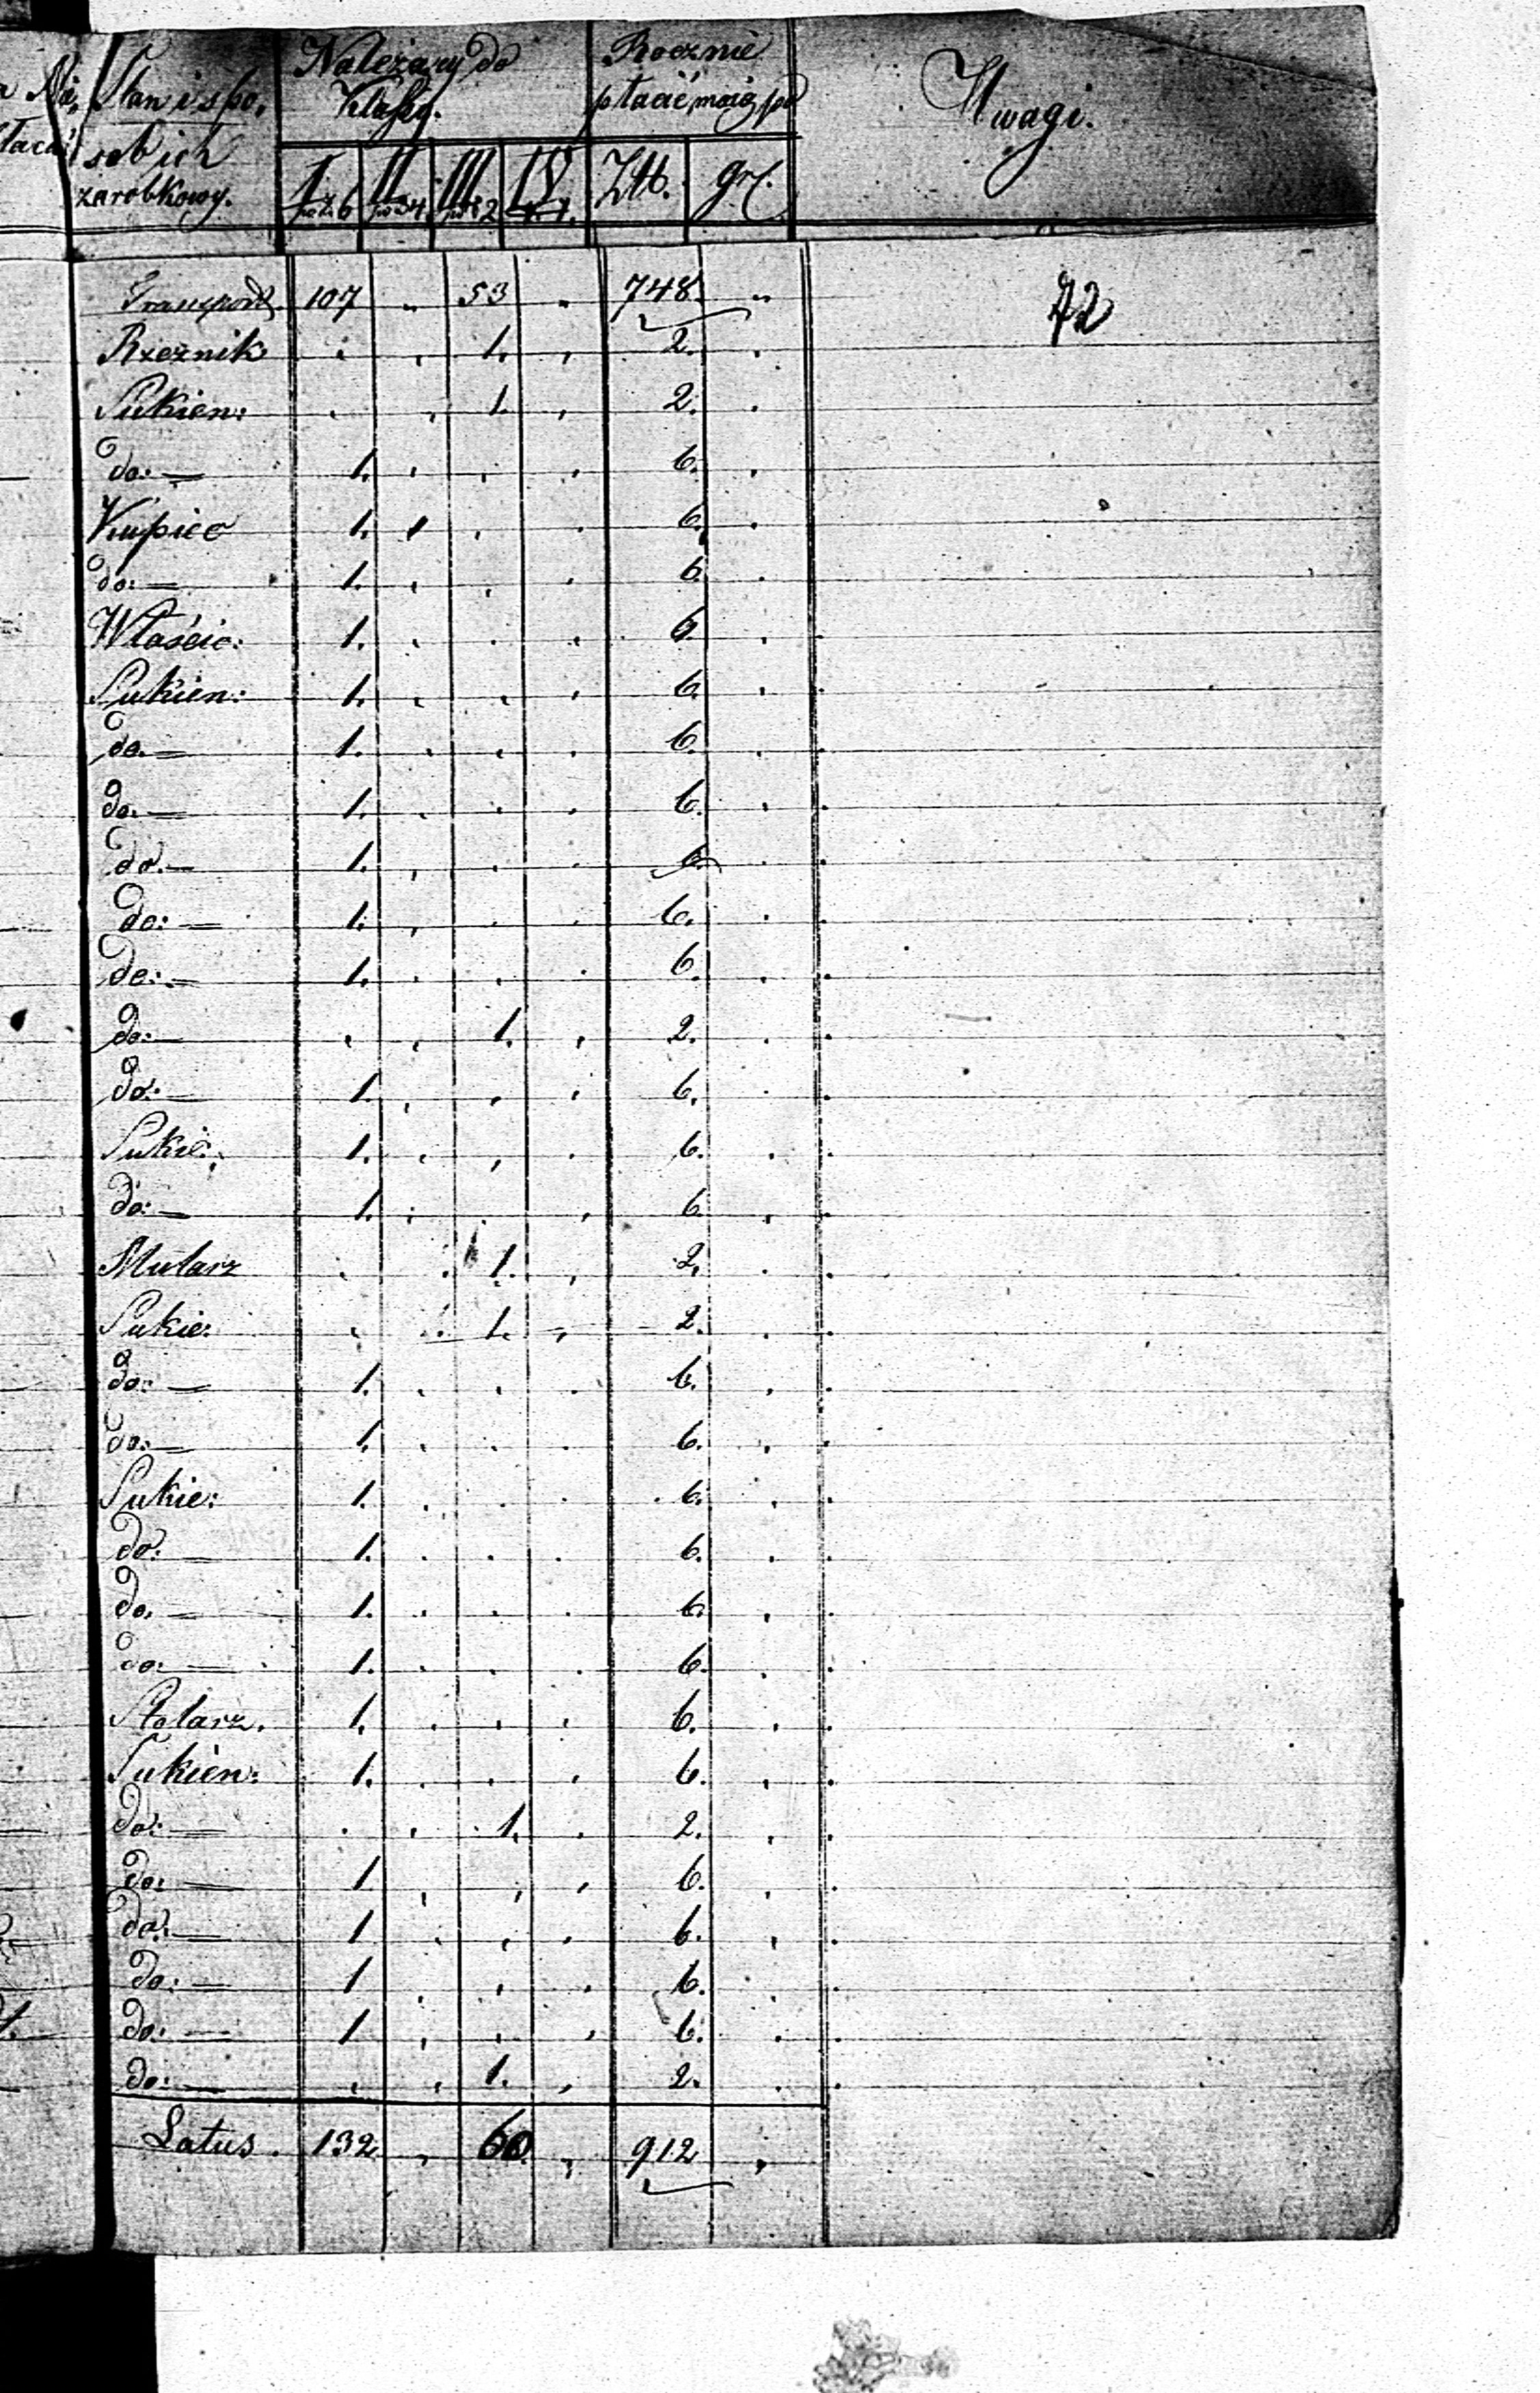 Stan i spo,
sob ich
zarobkowy.
Należący do
Klassy.
I po Zł 6 II po 4. III po 2 IV
Rocznie
płacić mają po
Złt. gr.
Uwagi.
72
Transport 107 " 53 " 748. "
Rzeźnik . , 1. , 2. .
Sukien: . , 1. , 2. .
do: — 1. . . . 6. .
Kupiec 1. , . . 6. .
do: — 1. . . . 6. .
Właścic: 1. . . . 6. .
Sukien: 1. . . . 6. .
do. — 1. . . . 6. .
do. — 1. . . . 6. .
do. — 1. , . . 6. .
do: — 1. , . . 6. .
do: — 1. . . . 6. .
do: — . , 1. , 2. .
do: — 1. , , . 6. .
Sukie: 1. . , . 6. .
do: — 1. . . , 6. .
Mularz . . 1. , 2. .
Sukie: . . 1. , 2. .
do: — 1. . . . 6. .
do: — 1. . . . 6. .
Sukie: 1. . . . 6. .
do: — 1. . . . 6. .
do. — 1. . . . 6. .
do: — 1. . . . 6. .
Stolarz. 1. . . . 6. .
Sukien: 1. . . . 6. .
do: — . . 1. . 2. .
do: — 1 , , , 6. ,
do: — 1 . , . 6. ,
do: — 1 , , , 6. .
do: — 1 , . , 6. .
do: — , , 1. , 2. .
Latus. 132 , 60 , 912 ,